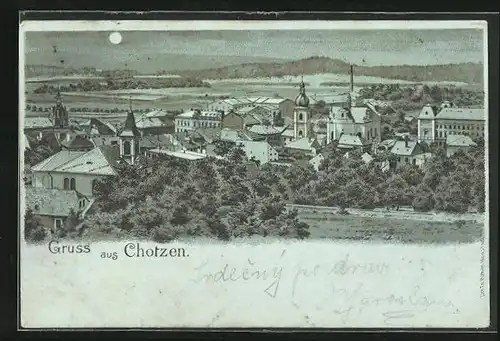 Gruss aus Chotzen.
Srdečný pozdrav
Jaroslav